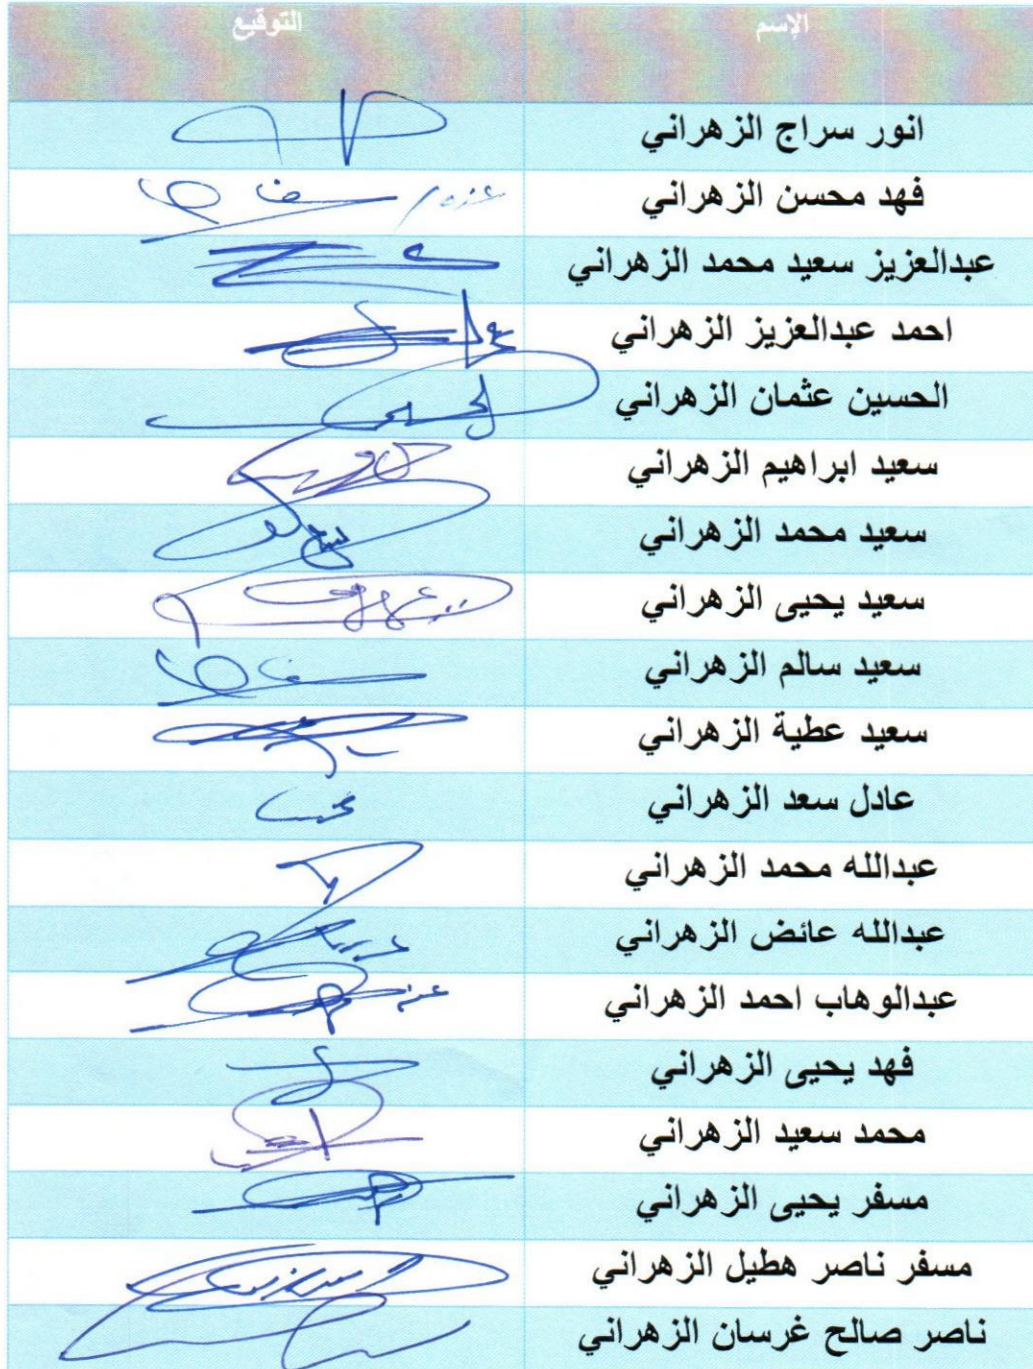 الإسم التوقيع
انور سراج الزهراني
فهد محسن الزهراني
عبدالعزيز سعيد محمد الزهراني
احمد عبدالعزيز الزهراني
الحسين عثمان الزهراني
سعيد ابراهيم الزهراني
سعيد محمد الزهراني
سعيد يحيى الزهراني
سعيد سالم الزهراني
سعيد عطية الزهراني
عادل سعد الزهراني
عبدالله محمد الزهراني
عبدالله عائض الزهراني
عبدالوهاب احمد الزهراني
فهد يحيى الزهراني
محمد سعيد الزهراني
مسفر يحيى الزهراني
مسفر ناصر هطيل الزهراني
ناصر صالح غرسان الزهراني